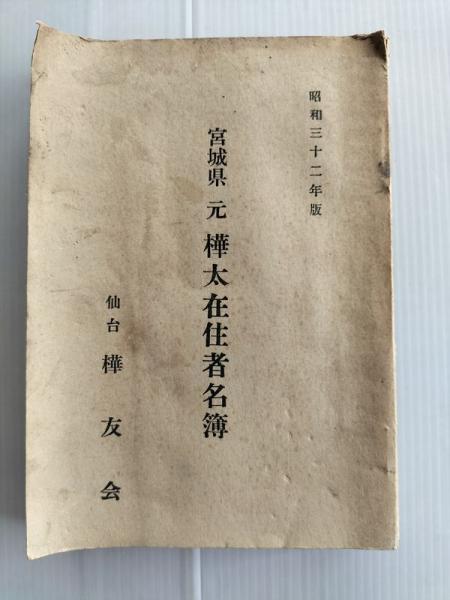 昭和三十二年版
宮城県 元 樺太在住者名簿
仙台 樺友会